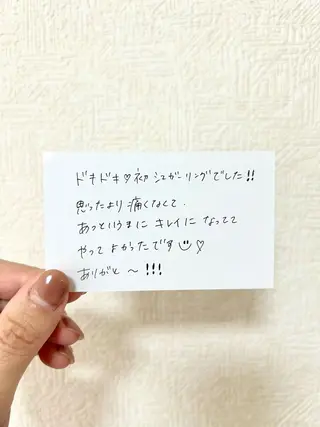 ドキドキ♡初シュガーリングでした!!
思ったより痛くなくて、
あっというまに キレイに なってて
やって よかったです☺♡
ありがと〜!!!